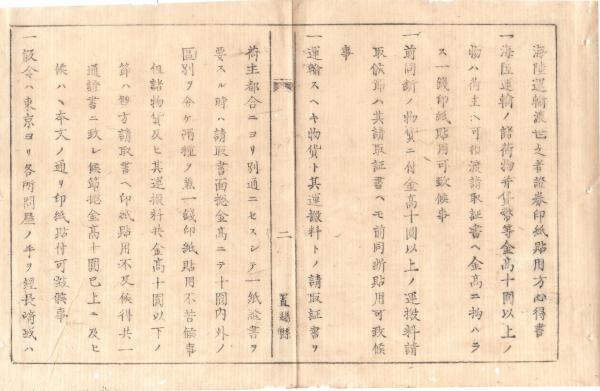 海陸運輸渡世之者證券印紙貼用方心得書
一海陸運輸ノ諸荷物并貨幣等金高十圓以上ノ
物ハ荷主ヘ可相渡請取証書ヘ金高ニ拘ハラ
ス一錢印紙貼用可致候事
一前同斷ノ物貨ニ付金高十圓以上ノ運搬料請
取候節ハ其請取証書ヘモ前同斷貼用可致候
事
一運輸スヘキ物貨ト其運搬料トノ請取証書ヲ
二
置賜縣
荷主都合ニヨリ別通ニセスシテ一紙證書ヲ
要スル時ハ請取書面惣金高ニテ十圓内外ノ
區別ヲ分ケ兩種ヲ兼一錢印紙貼用不苦候事
但諸物貨及ヒ其運搬料共金高十圓以下ノ
節ハ雙方請取書ヘ印紙貼用不及候得共一
通證書ニ致シ候節惣金高十圓已上ニ及ヒ
候ハヽ本文ノ通リ印紙貼付可致候事
一假令ハ東京ヨリ各所問屋ノ手ヲ經長崎或ハ